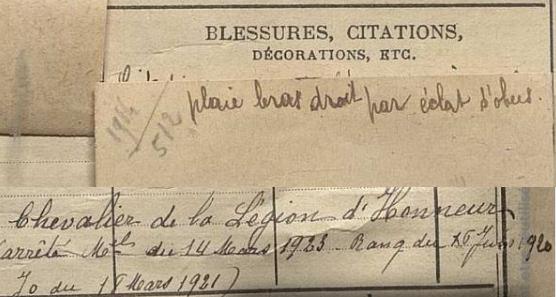 BLESSURES, CITATIONS,
DÉCORATIONS, ETC.
plaie bras droit par éclat d'obus.
1914
5/2
Chevalier de la Légion d'Honneur
(arrêté Mel du 14 Mars 1923. Rang du 16 Juin 1920
Jo du 18 Mars 1921)